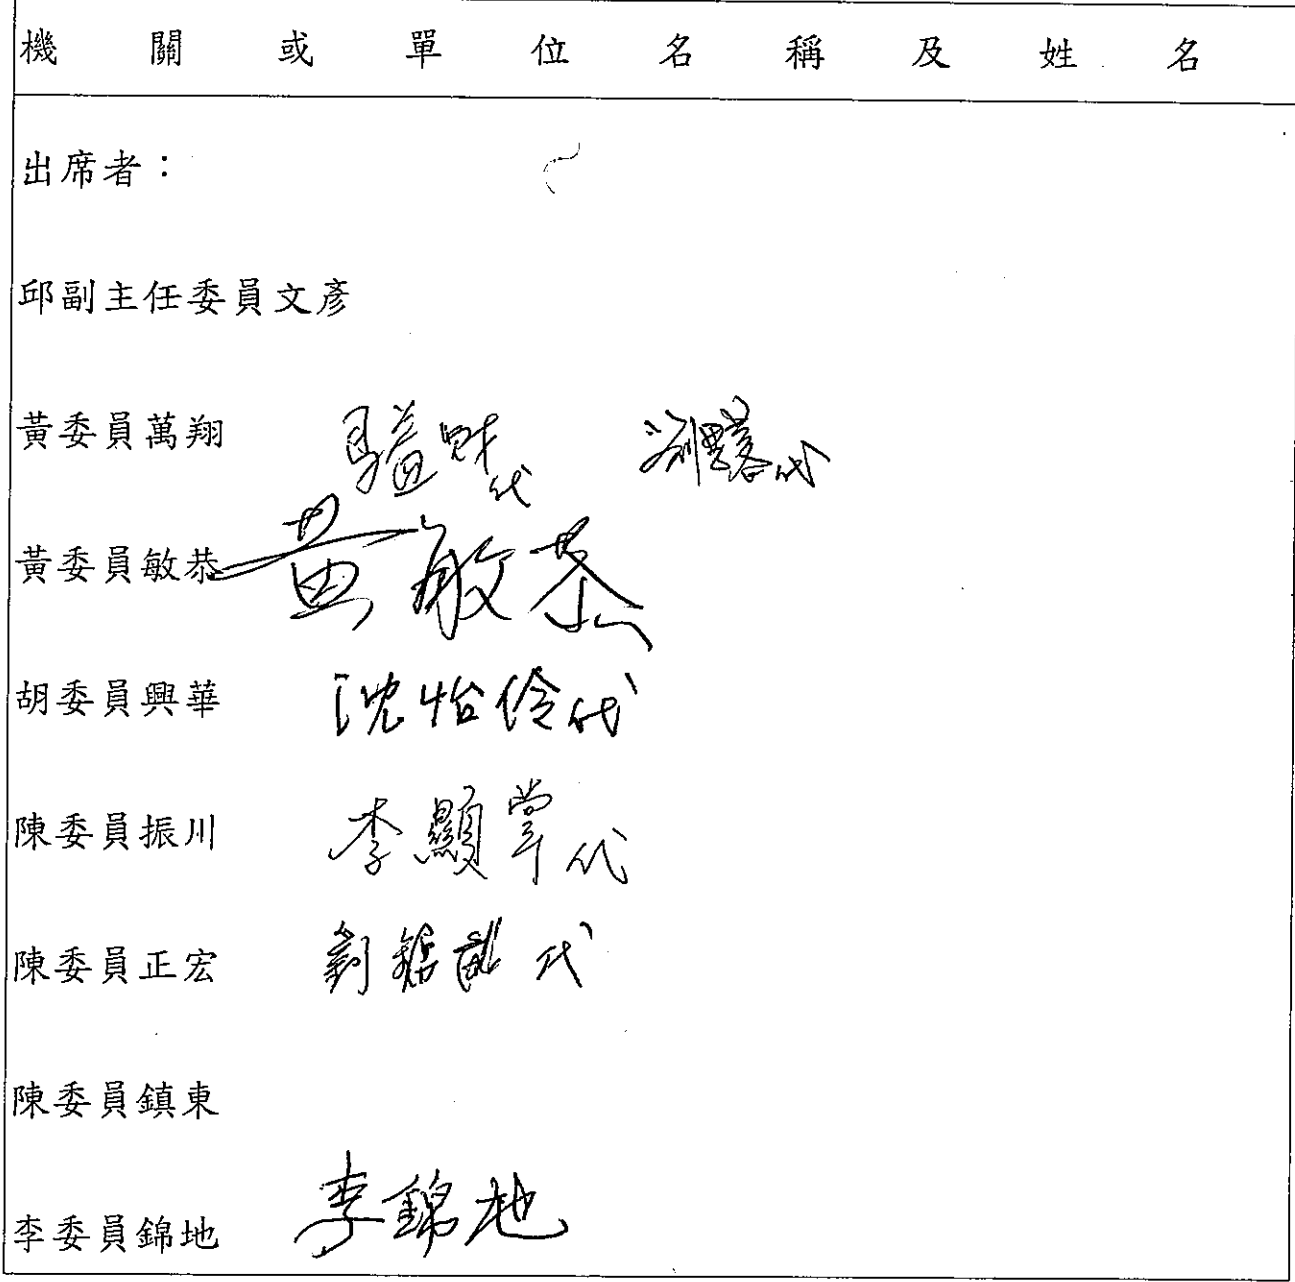 機關或單位名稱及姓名
出席者：
邱副主任委員文彥
黃委員萬翔 代 代
黃委員敏恭 黃敏恭
胡委員興華 沈怡伶代
陳委員振川 李顯掌代
陳委員正宏 劉銘龍代
陳委員鎮東
李委員錦地 李錦地